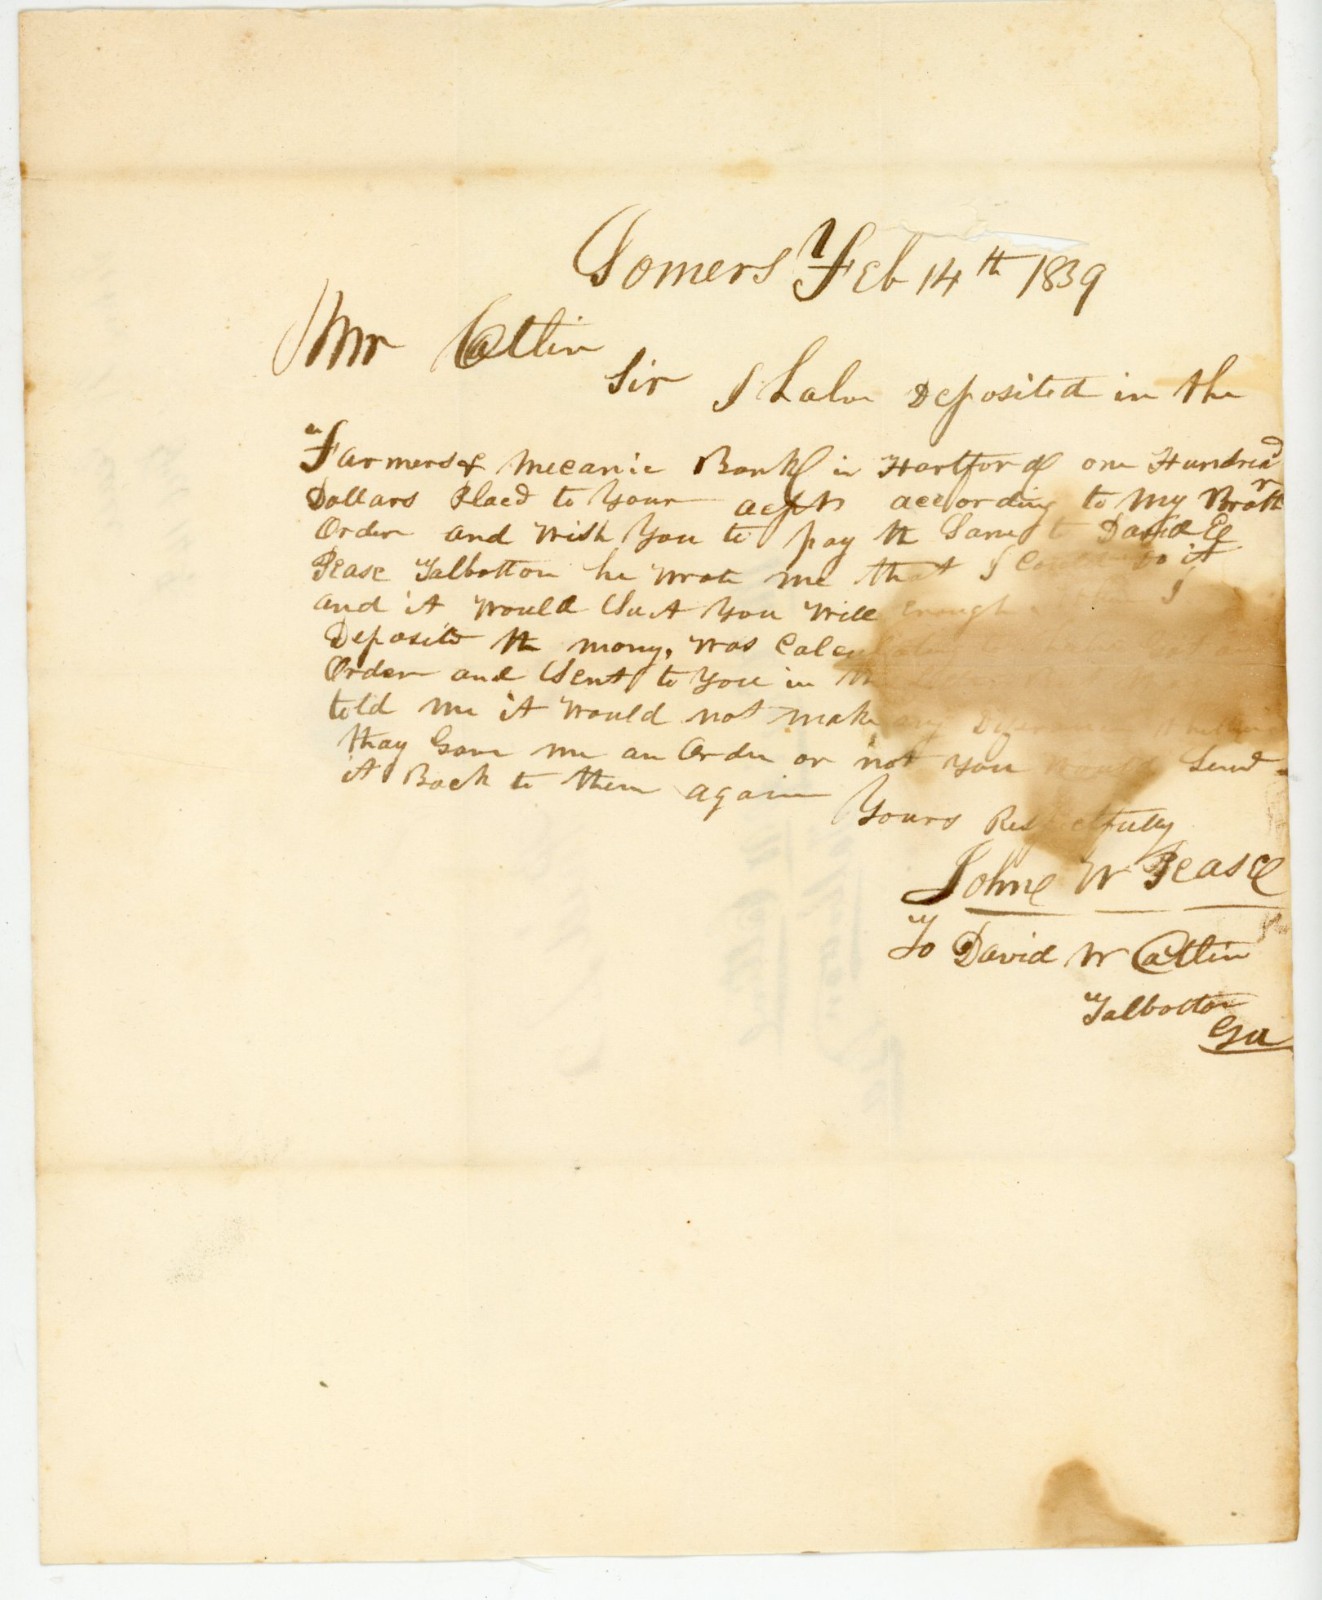 Somers Feb 14th 1839
Mr Catlin
Sir I have Deposited in the
Farmers & Mecanic Bank in Hartford one Hundred
Dollars Placd to Your acpt according to My Brothr
Order and wish You to pay the Same to David E
Pease Talbotton he wrote me that I Could Do it
and it would Suit You Well enough I
Deposite the mony, was Calculating
Order and Sent to You in the
told me it would not make any
thay Gave me an Order or not You would Send
it Back to them again
Yours Respectfully
John W Pease
To David W Catlin
Talbotton
Ga